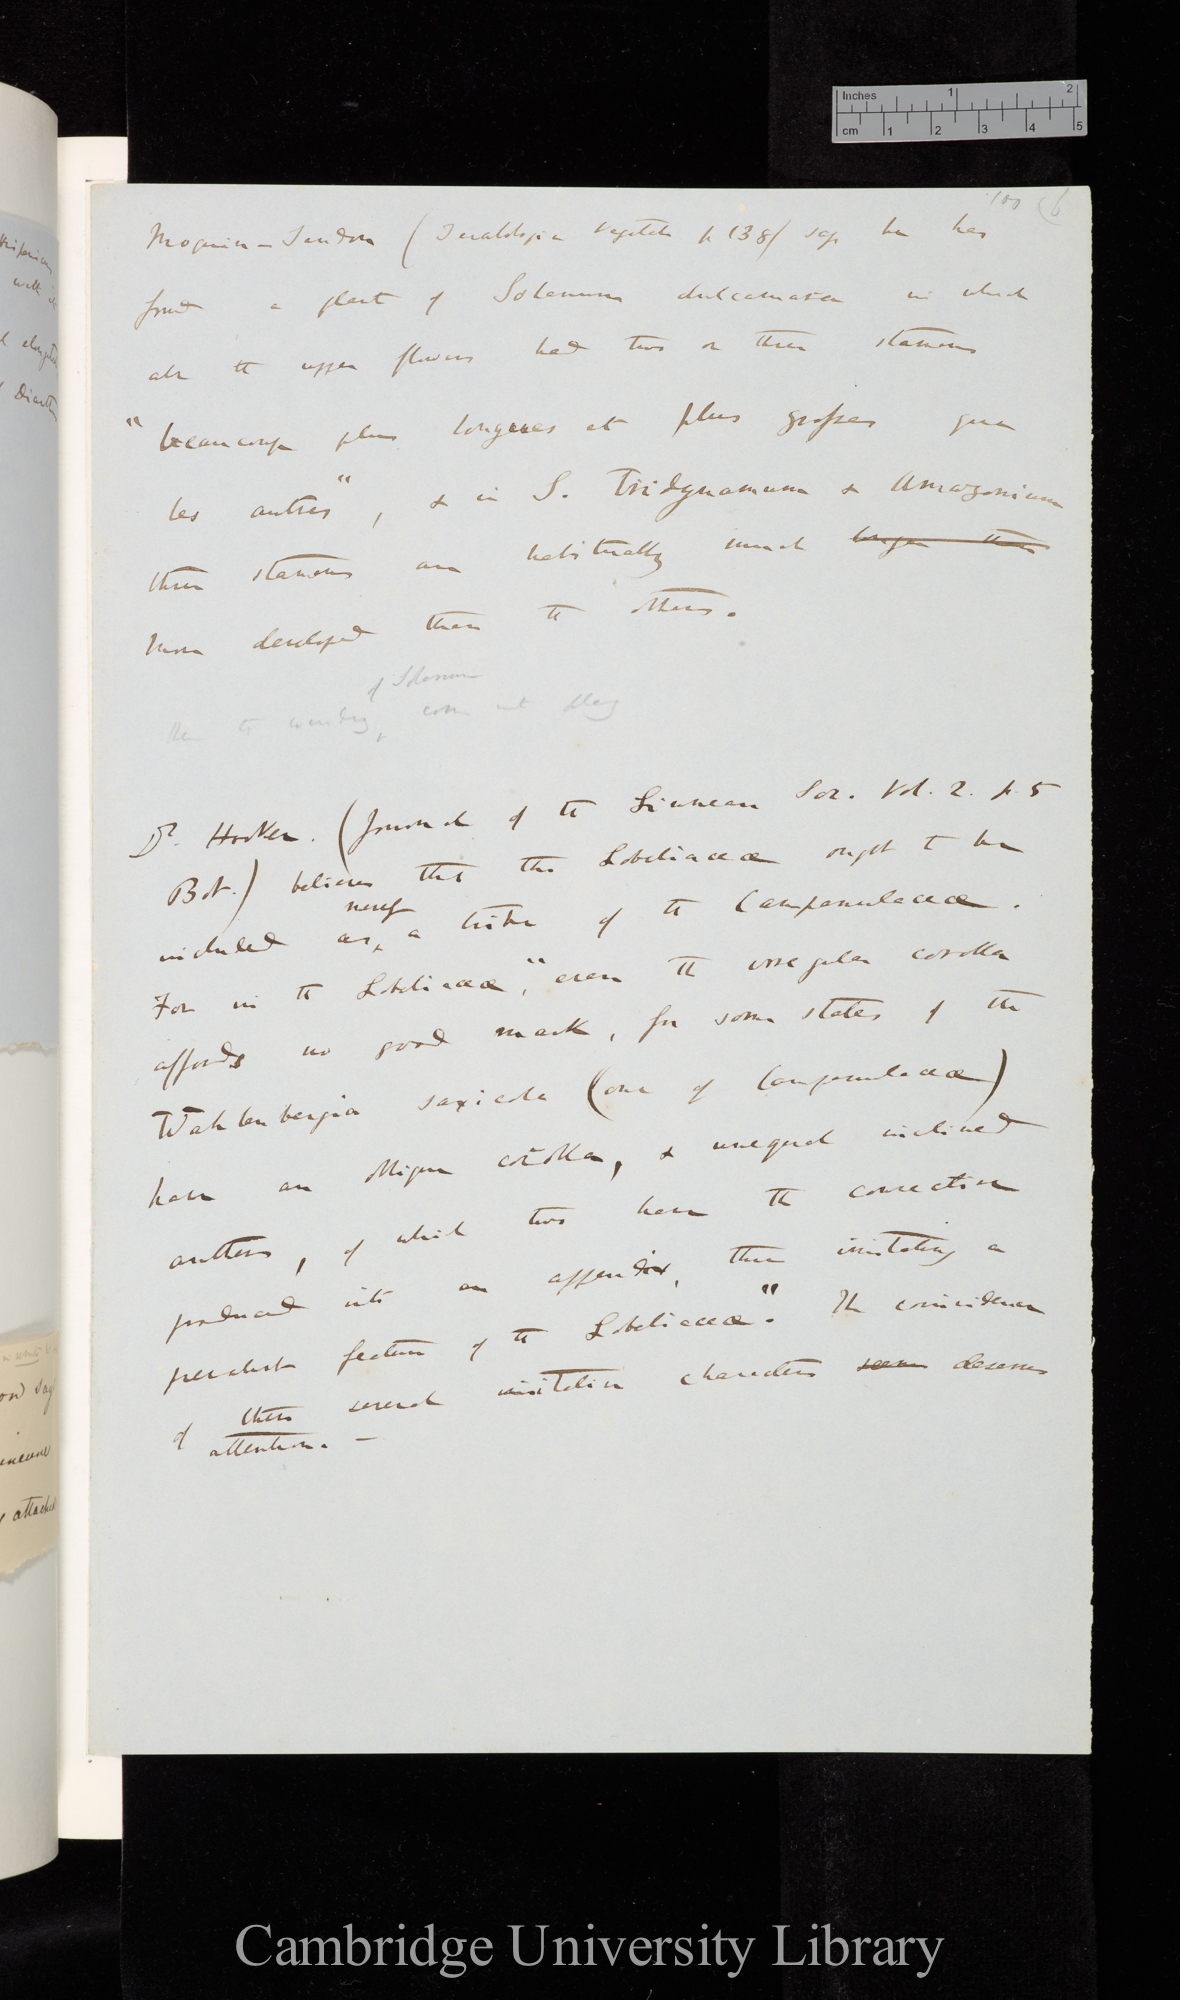 Inches 1 2
cm 1 2 3 4 5
100
Moquin-Tandon (Teratologie Vegetale p 138) says he has
found a plant of Solanum dulcamara in which
all the upper flowers had two or three stamens
"beaucoup plus longues et plus grosses que
les autres", & in S. Tridynamum & Amazonium
three stamens are habitually much longer than
more developed than the others.
of Solanum
Dr. Hooker. (Journal of the Linnean Soc. Vol. 2. p. 5
Bot.) believes that the Lobeliaceæ ought to be
merely
included as a tribe of the Campanulaceæ.
For in the Lobeliaceæ, "even the irregular corolla
affords no good mark, for some states of the
Wahlenbergia saxicola (one of Campanulaceæ)
have an oblique corolla, & unequal inclined
anthers, of which two have the connective
produced into an appendix, thus imitating a
peculiar feature of the Lobeliaceæ." The coincidence
of these several imitative characters seem deserves
attention. —
with
Cambridge University Library